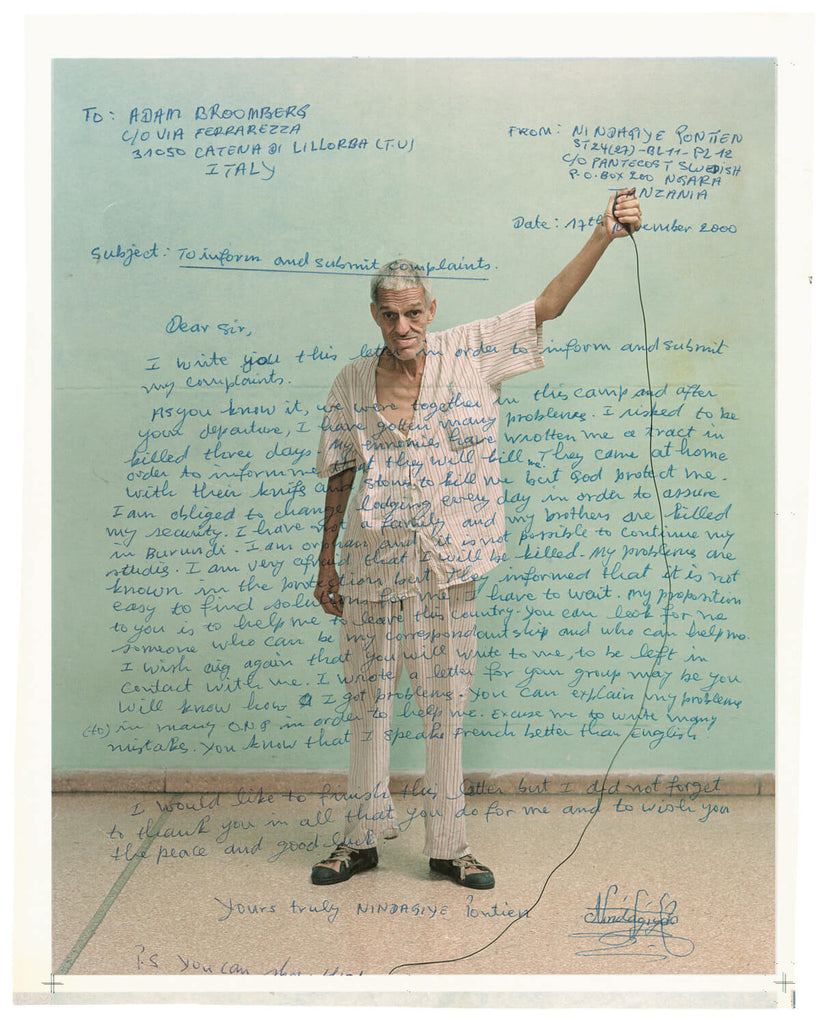 TO: ADAM BROOMBERG
C/O VIA FERRAREZZA
31050 CATENA DI LILLORBA (TU)
ITALY
FROM: NINDAGIYE PONTIEN
ST24(27)-BL11-PL12
C/O PANTECOST SWEDISH
P.O.BOX 200 NGARA
TANZANIA
Date: 17th November 2000
Subject: To inform and submit complaints.
Dear Sir,
I write you this letter in order to inform and submit
my complaints.
As you know it, we were together in this camp and after
your departure, I have gotten many problems. I risked to be
killed three days. My ennemies have wrotten me a tract in
order to inform me that they will kill me. They came at home
with their knifs and stones to kill me but God protect me.
I am obliged to change lodging every day in order to assure
my security. I have not a family and my brothers are killed
in Burundi. I am orphan and it is not possible to continue my
studies. I am very afraid that I will be killed. My problems are
known in the protection but they informed that it is not
easy to find solutions for me. I have to wait. My proposition
to you is to help me to leave this country. You can look for me
someone who can be my correspondantship and who can help me.
I wish again that you will write to me, to be left in
contact with me. I wrote a letter for your group may be you
will know how I got problems. You can explain my problems
(to) in many O.N.G in order to help me. Excuse me to write many
mistakes. You know that I speake French better than English.
I would like to finish this letter but I did not forget
to thank you in all that you do for me and to wish you
the peace and good luck.
Yours truly NINDAGIYE Pontien
P.S You can